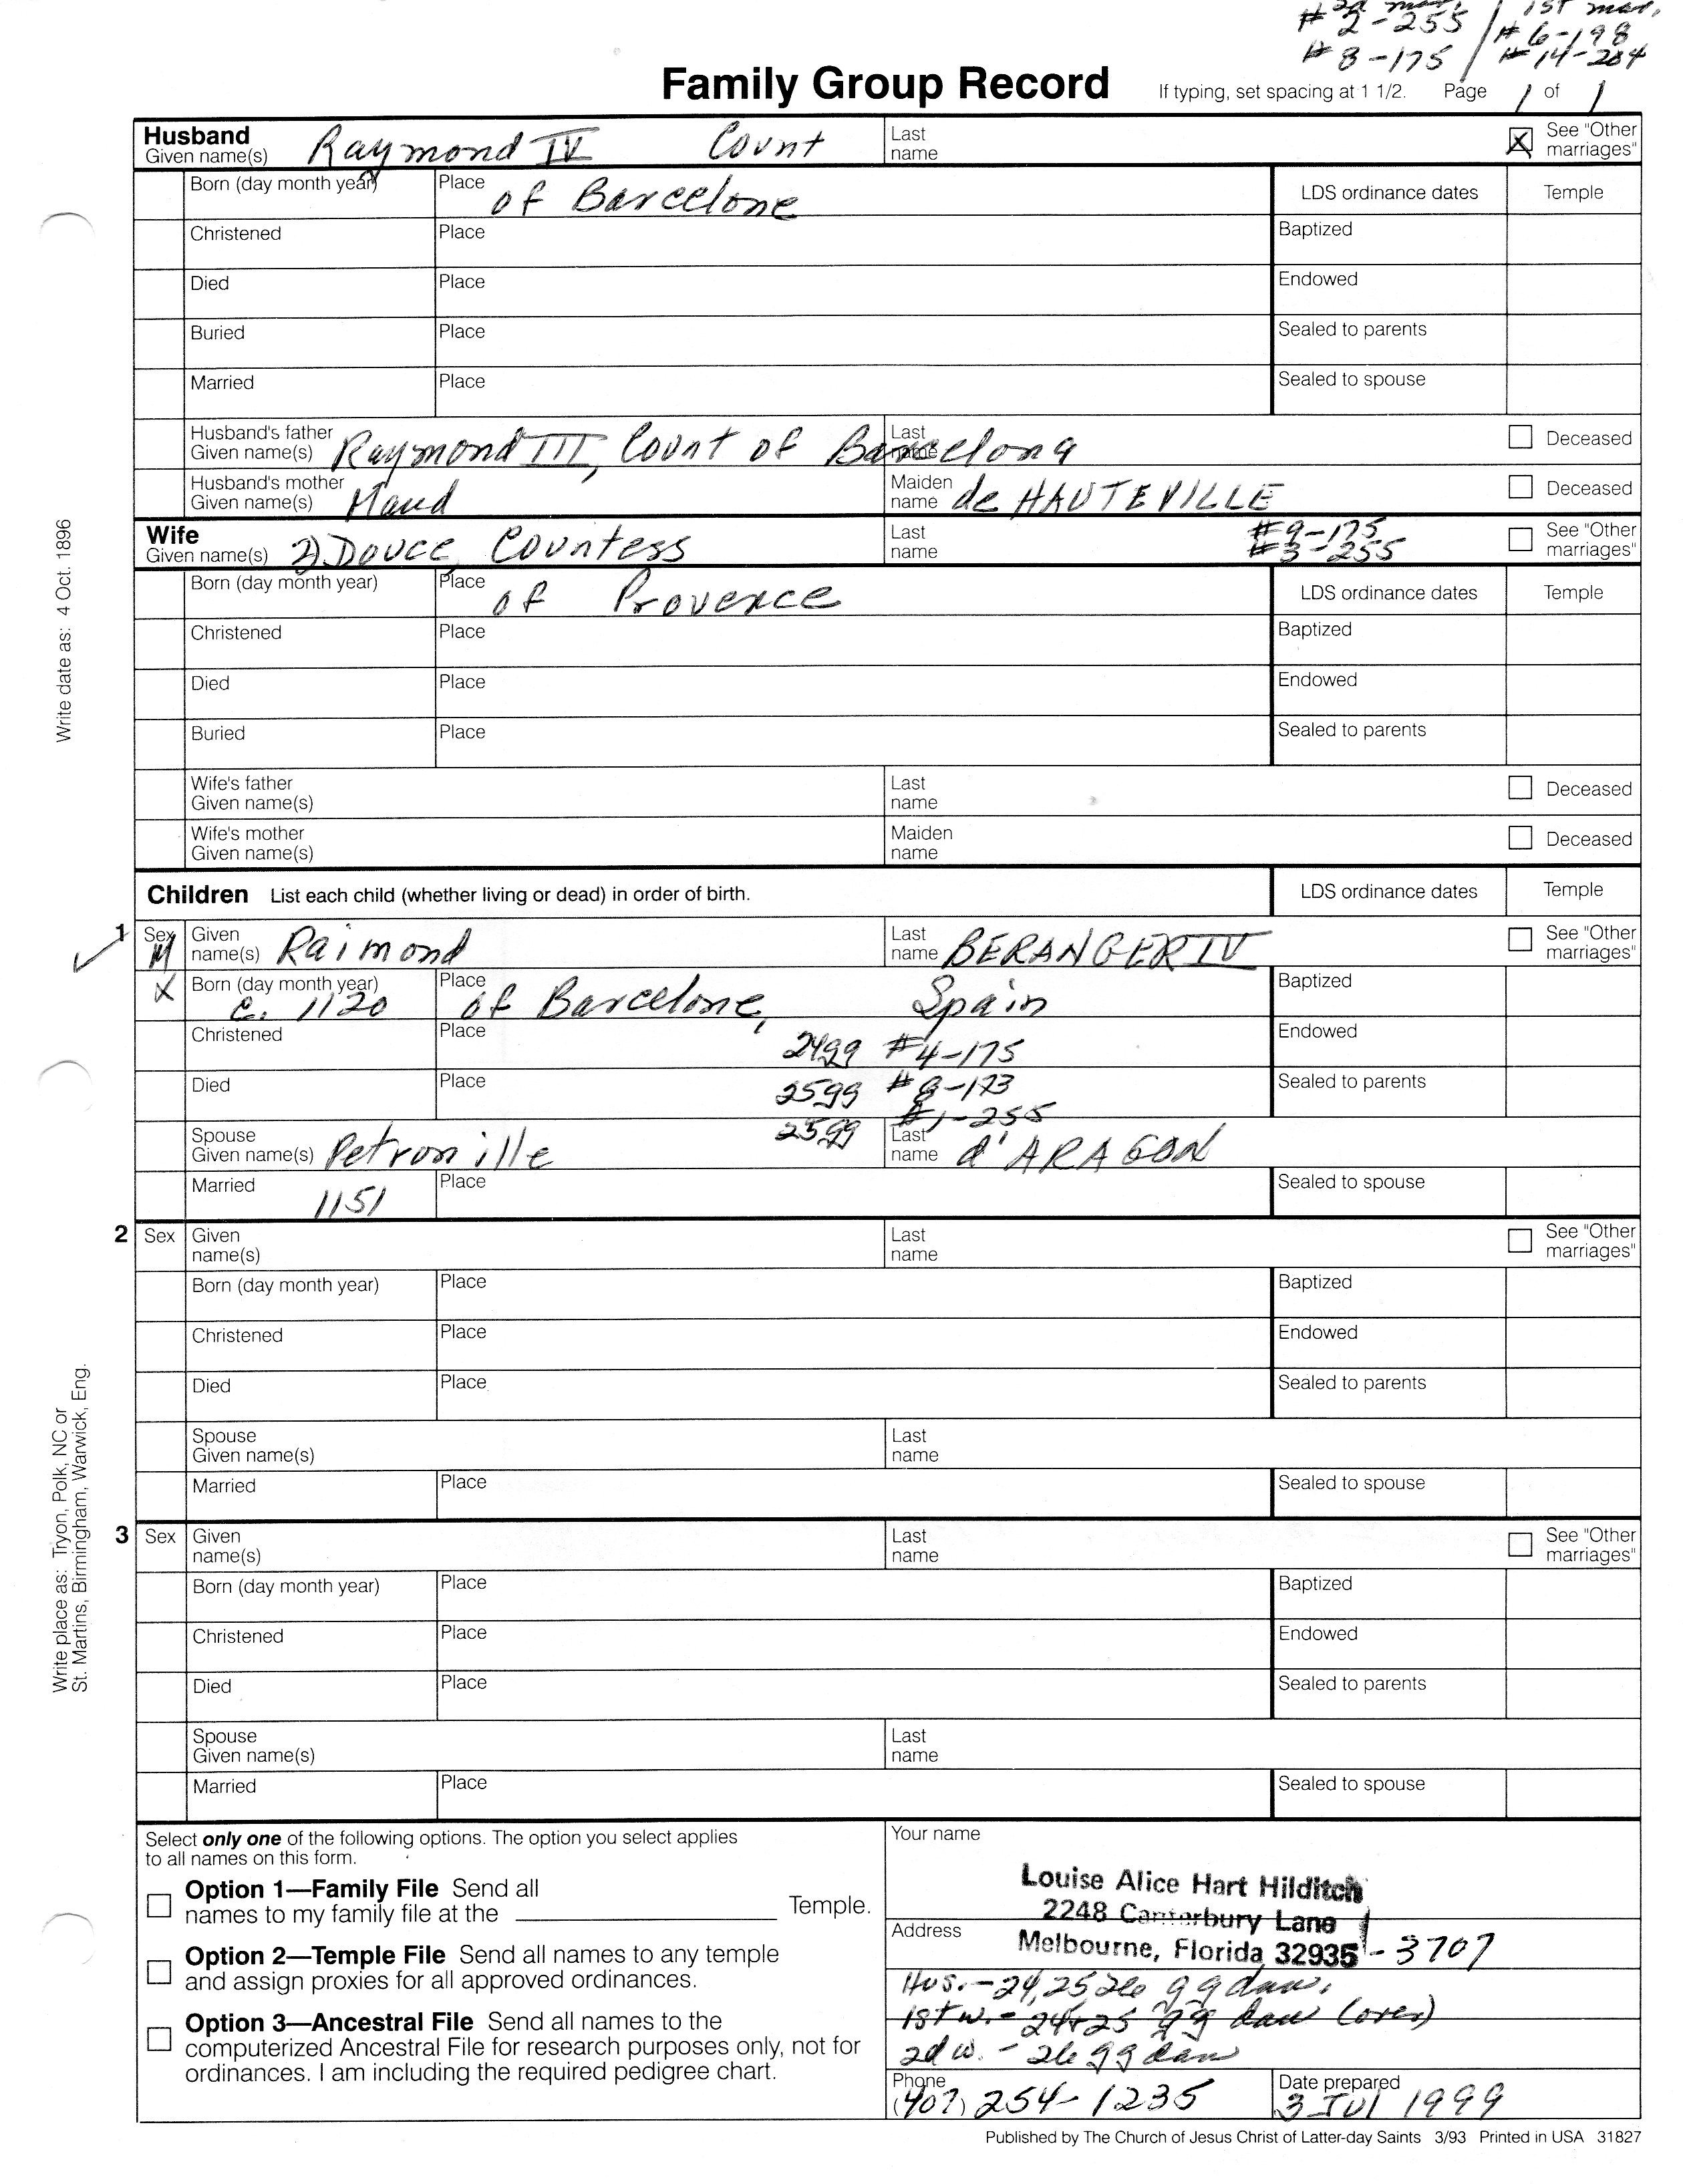 # 2d mar. / 1st mar.
# 2-255 / # 6-198
# 8-175 / # 14-204
Family Group Record
If typing, set spacing at 1 1/2. Page 1 of 1
Husband
Given name(s) Raymond IV Count
Last name
See "Other marriages"
Born (day month year)
Place of Barcelone
LDS ordinance dates
Temple
Christened
Place
Baptized
Died
Place
Endowed
Buried
Place
Sealed to parents
Married
Place
Sealed to spouse
Husband's father
Given name(s) Raymond III, Count of Barcelona
Last name
Deceased
Husband's mother
Given name(s) Maud
Maiden name de HAUTEVILLE
Deceased
Wife
Given name(s) 2) Douce, Countess
Last name
#9-175
#3-255
See "Other marriages"
Born (day month year)
Place of Provence
LDS ordinance dates
Temple
Christened
Place
Baptized
Died
Place
Endowed
Buried
Place
Sealed to parents
Wife's father
Given name(s)
Last name
Deceased
Wife's mother
Given name(s)
Maiden name
Deceased
Children List each child (whether living or dead) in order of birth.
LDS ordinance dates
Temple
1 Sex M
Given name(s) Raimond
Last name BERANGER IV
See "Other marriages"
X
Born (day month year) C. 1120
Place of Barcelone, Spain
Baptized
Christened
Place
24gg #4-175
Endowed
Died
Place
25gg #8-173
Sealed to parents
25gg #1-255
Spouse
Given name(s) Petronille
Last name d'ARAGON
Married 1151
Place
Sealed to spouse
2 Sex
Given name(s)
Last name
See "Other marriages"
Born (day month year)
Place
Baptized
Christened
Place
Endowed
Died
Place
Sealed to parents
Spouse
Given name(s)
Last name
Married
Place
Sealed to spouse
3 Sex
Given name(s)
Last name
See "Other marriages"
Born (day month year)
Place
Baptized
Christened
Place
Endowed
Died
Place
Sealed to parents
Spouse
Given name(s)
Last name
Married
Place
Sealed to spouse
Write date as: 4 Oct. 1896
Write place as: Tryon, Polk, NC or
St. Martins, Birmingham, Warwick, Eng.
Select only one of the following options. The option you select applies
to all names on this form.
Option 1—Family File Send all
names to my family file at the Temple.
Option 2—Temple File Send all names to any temple
and assign proxies for all approved ordinances.
Option 3—Ancestral File Send all names to the
computerized Ancestral File for research purposes only, not for
ordinances. I am including the required pedigree chart.
Your name
Louise Alice Hart Hilditch
2248 Canterbury Lane
Address
Melbourne, Florida 32935-3707
Hus.-24,25,26 gg dau.
1st w.-24+25 gg dau (over)
2d w.-26 gg dau
Phone
(407) 254-1235
Date prepared
3 Jul 1999
Published by The Church of Jesus Christ of Latter-day Saints 3/93 Printed in USA 31827